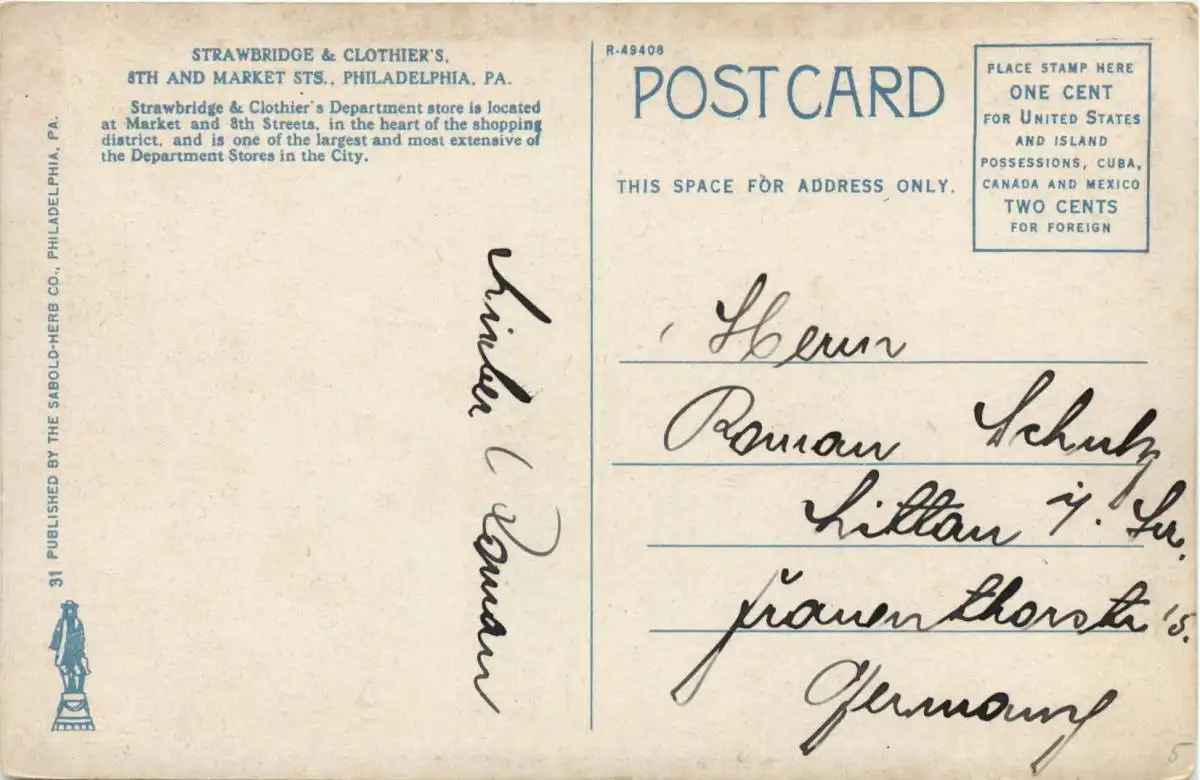 STRAWBRIDGE & CLOTHIER'S,
8TH AND MARKET STS., PHILADELPHIA, PA.
Strawbridge & Clothier's Department store is located
at Market and 8th Streets, in the heart of the shopping
district, and is one of the largest and most extensive of
the Department Stores in the City.
31 PUBLISHED BY THE SABOLD-HERB CO., PHILADELPHIA, PA.
Lieber Roman
R-49408
POST CARD
THIS SPACE FOR ADDRESS ONLY.
PLACE STAMP HERE
ONE CENT
FOR UNITED STATES
AND ISLAND
POSSESSIONS, CUBA,
CANADA AND MEXICO
TWO CENTS
FOR FOREIGN
Herrn
Roman Schulz
Zittau i. Sa.
Frauenthorstr 5.
Germany
5